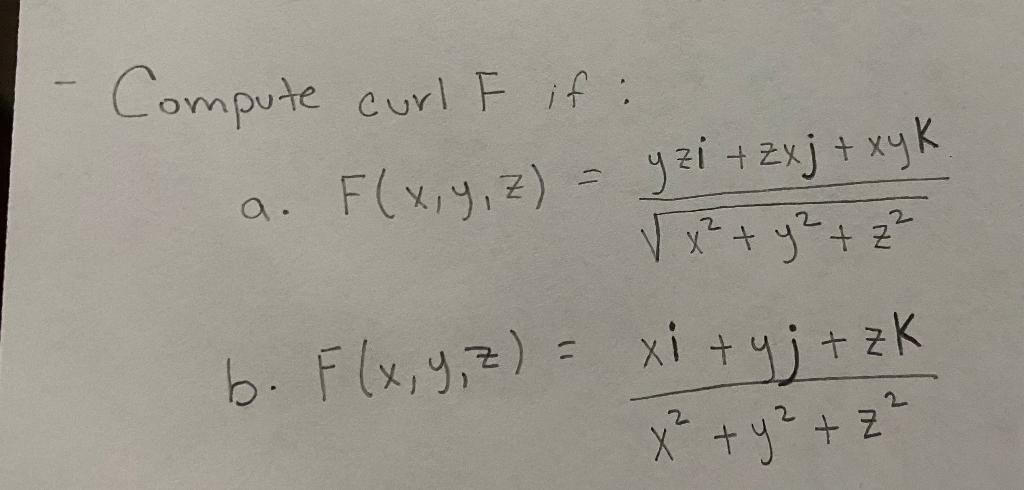 - Compute curl F if :
a. F(x,y,z) = yzi + zxj + xyk / √x² + y² + z²
b. F(x,y,z) = xi + yj + zk / x² + y² + z²